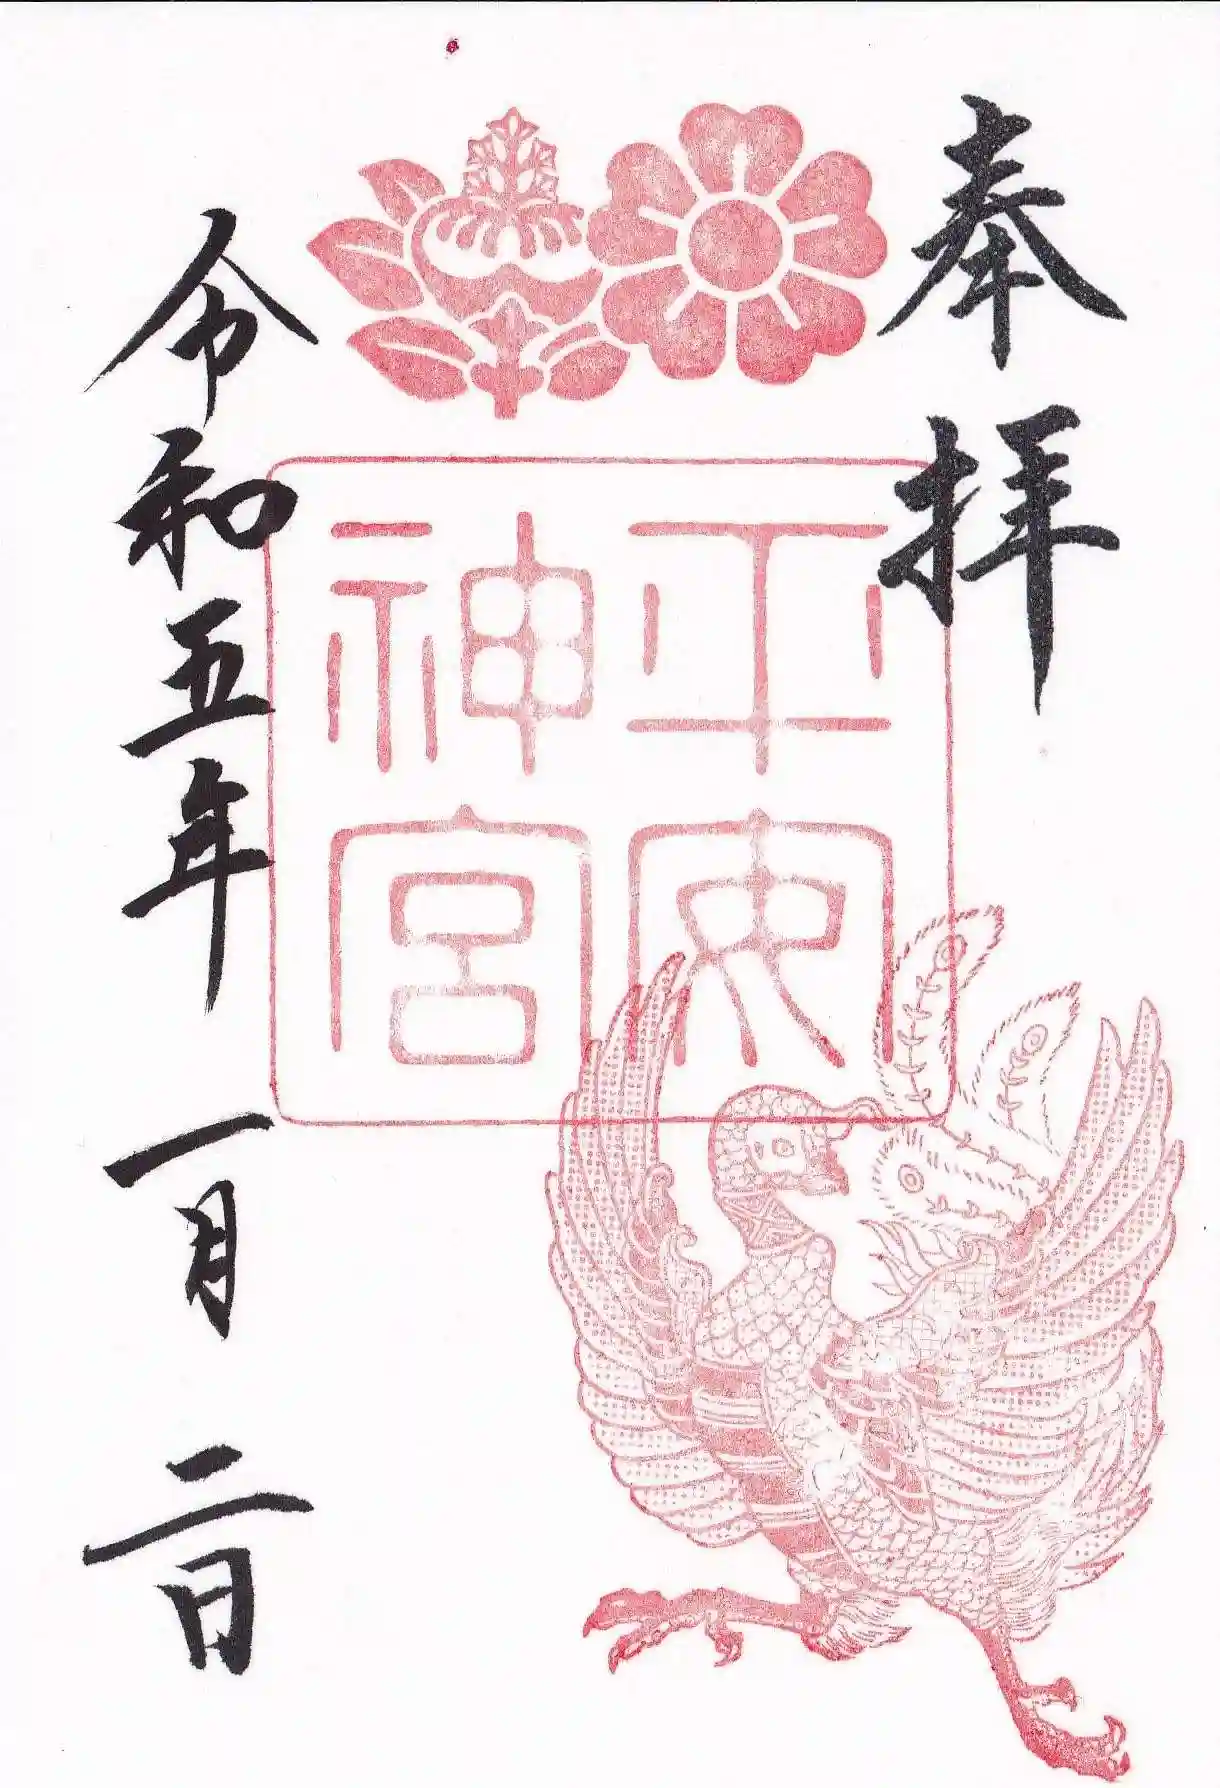 奉拝
平安
神宮
令和五年一月二日